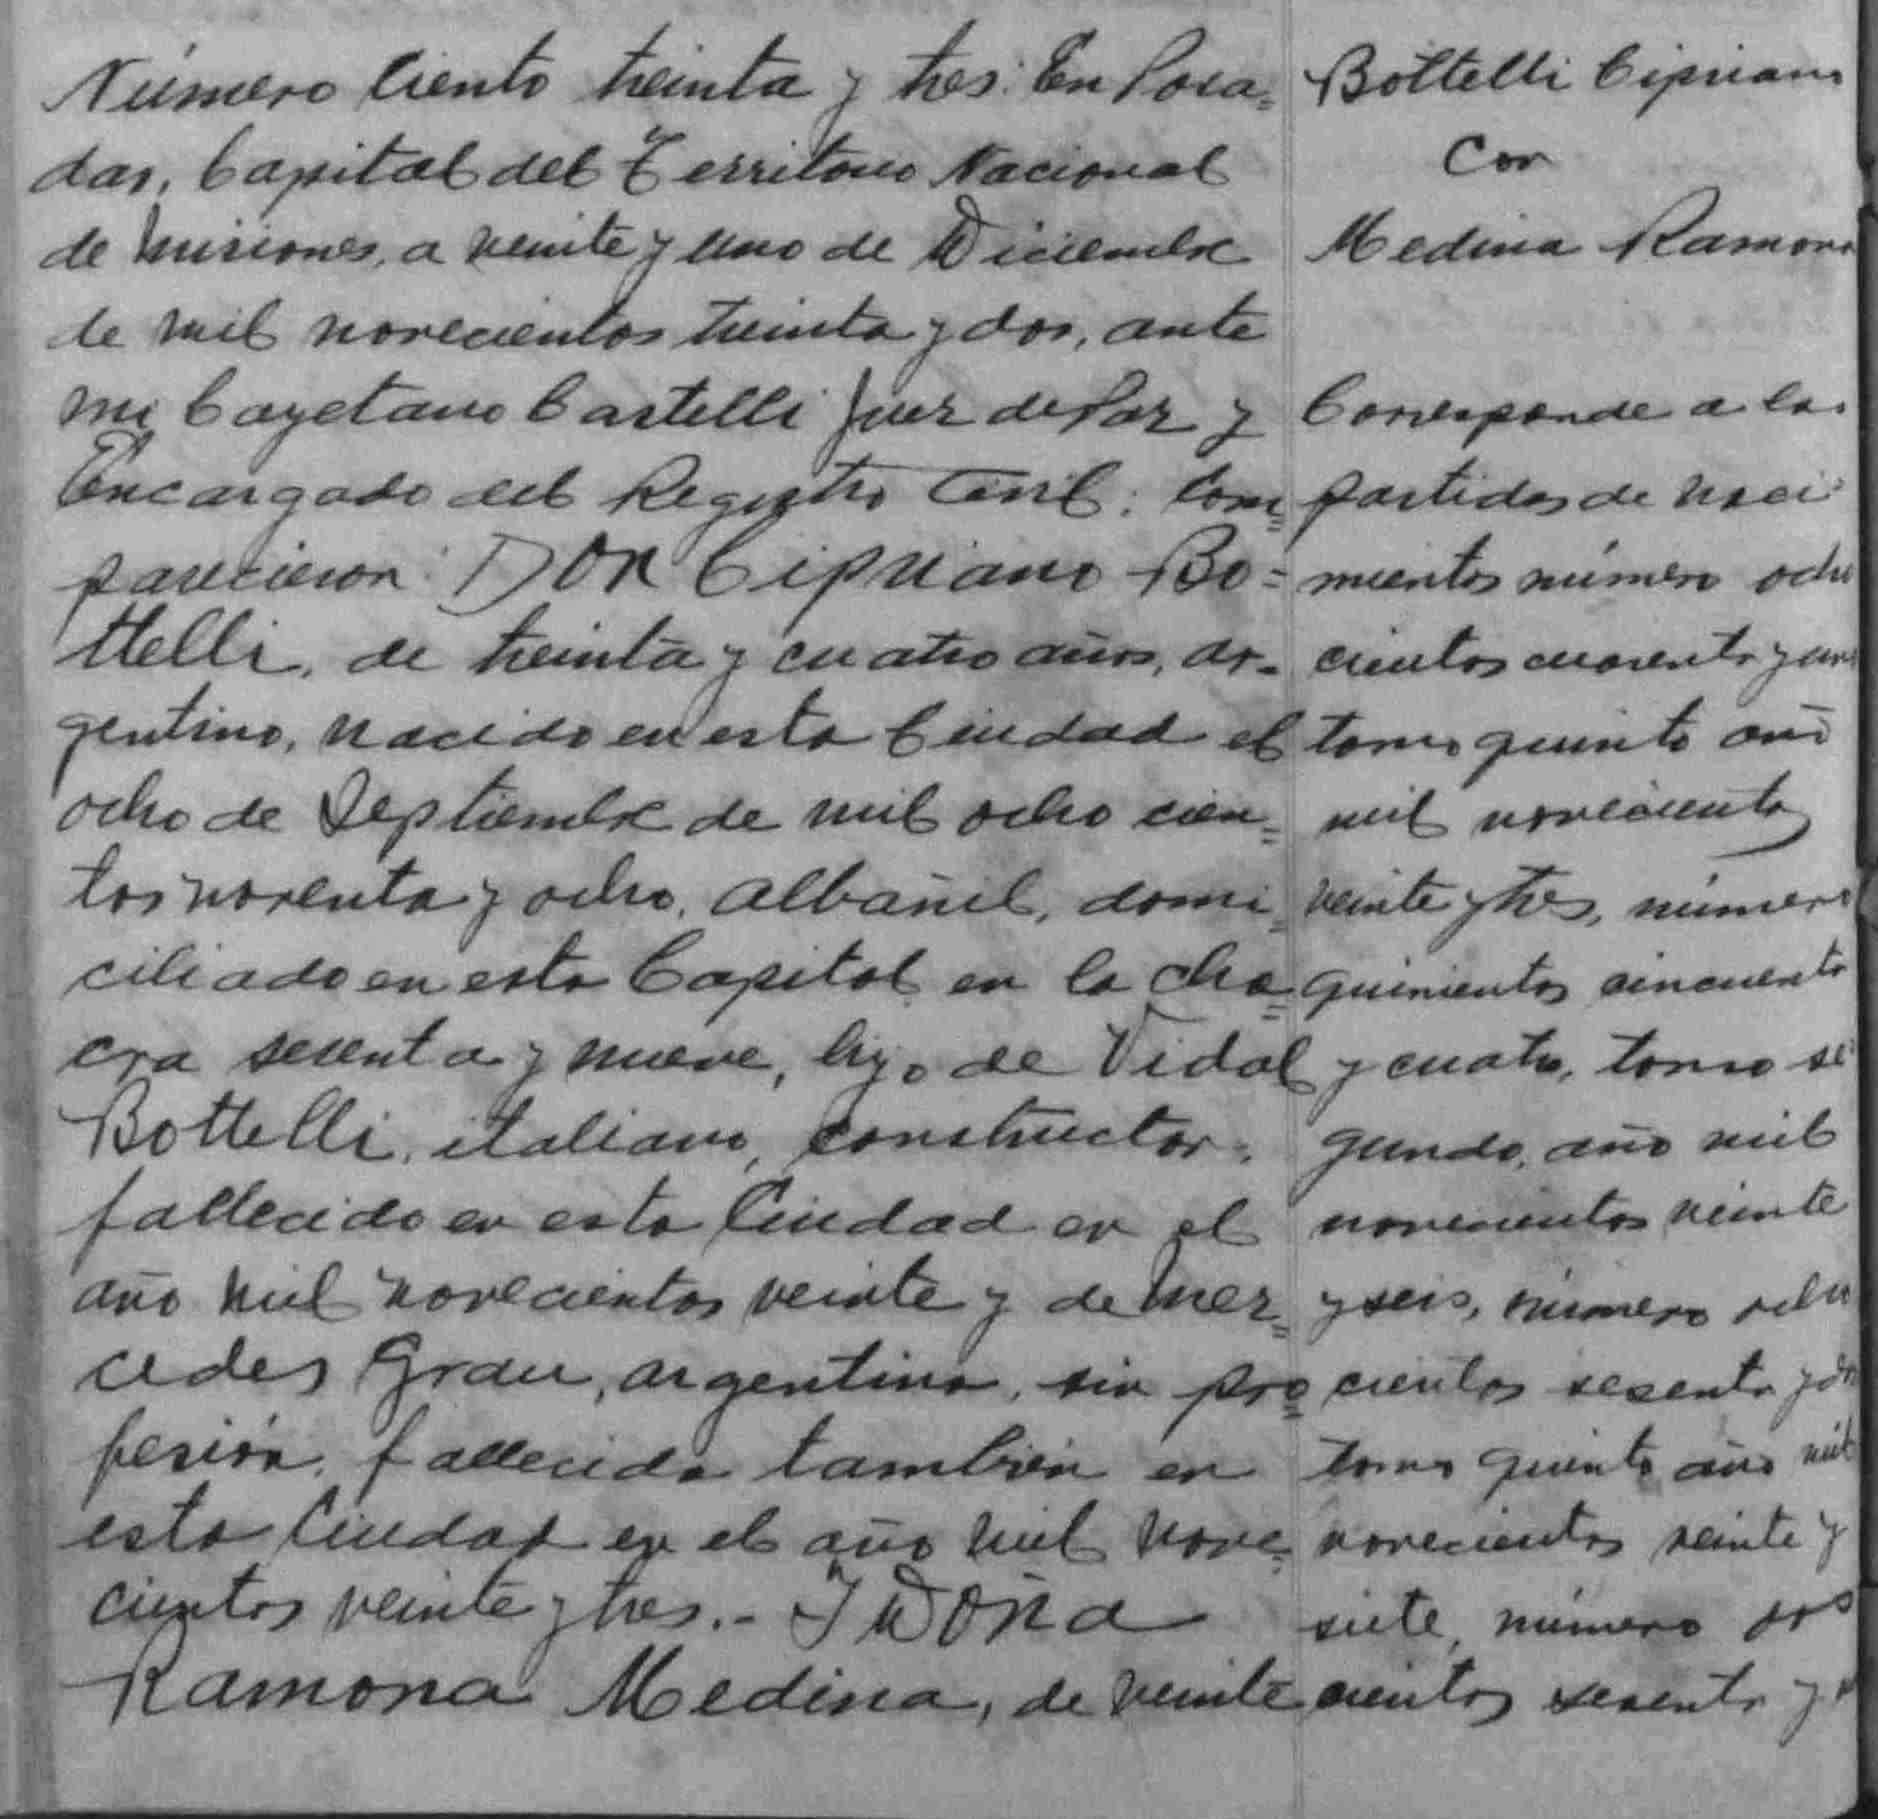 Número Ciento treinta y tres: En Posa=
das, Capital del Territorio Nacional
de Misiones, a veinte y uno de Diciembre
de mil novecientos treinta y dos, ante
mi Cayetano Castelli Juez de Paz y
Encargado del Registro Civil: Com=
parecieron: DON Cipriano Bo=
ttelli, de treinta y cuatro años, ar=
gentino, nacido en esta Ciudad el
ocho de Septiembre de mil ocho cien=
tos noventa y ocho, albañil, domi=
ciliado en esta Capital en la cha=
cra sesenta y nueve, hijo de Vidal
Bottelli, italiano, constructor,
fallecido en esta Ciudad en el
año mil novecientos veinte y de Mer=
cedes Grau, argentina, sin pro=
fesión, fallecida también en
esta Ciudad en el año mil nove=
cientos veinte y tres.- Y DOÑA
Ramona Medina, de veinte
Bottelli Cipriano
Con
Medina Ramona
Corresponde a las
partidas de naci
mientos número ocho
cientos cuarenta y uno
tomo quinto año
mil novecientos
veinte y tres, número
quinientos cincuenta
y cuatro, tomo se
gundo, año mil
novecientos veinte
y seis, número ocho
cientos sesenta y dos
tomo quinto año mil
novecientos veinte y
siete, número dos
cientos sesenta y